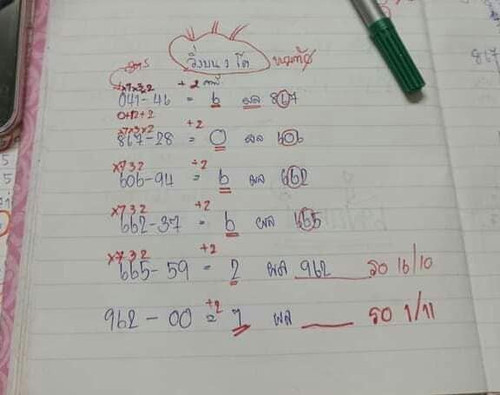 สูตร วิ่งบน 1 ตัว
x7x3x2 +2
041-46 = 6 ผล 867
0+12+2
x7x3x2 +2
867-28 = 0 ผล 606
x732 +2
606-94 = 6 ผล 662
x732 +2
662-37 = 6 ผล 665
x732 +2
665-59 = 2 ผล 962 รอ 16/10
+2
962-00 = 7 ผล ___ รอ 1/11
867